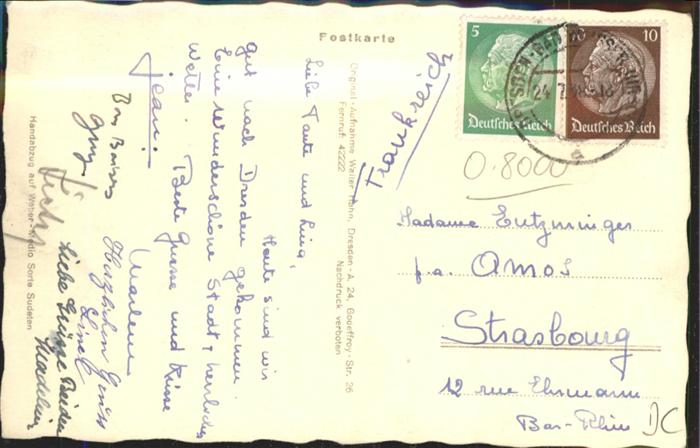 Postkarte
Liebe Tante und Lina,
Heute sind wir
gut nach Dresden gekommen.
Eine wunderschöne Stadt, herrliches
Wetter. Beste Grüsse und Küsse
Jean!
Marlene
Bons Baisers
Herzlichen Gruss
Liebe Grüsse Beiden
Madeleine
Original-Aufnahme Walter Hahn, Dresden-A. 24, Gooeffroy-Str. 26
Fernruf: 42222 Nachdruck verboten
Handabzug auf Weber-Medio Sorte Sudeten
Frankreich
5
Deutsches Reich
10
Deutsches Reich
24.7.
0.8000
Madame Entzminger
p.a. Amos
Strasbourg
12 rue Ehrmann
Bas-Rhin
DC